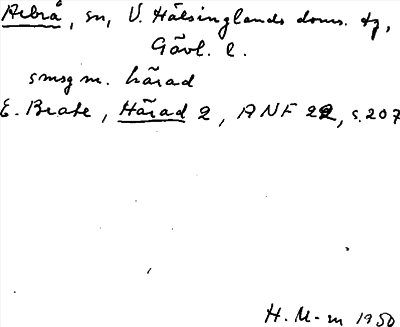 Arbrå, sn, V. Hälsinglands doms. tg,
Gävl. l.
smsg m. härad
E. Brate, Härad 2, ANF 22, s. 207
H. M-m 1950